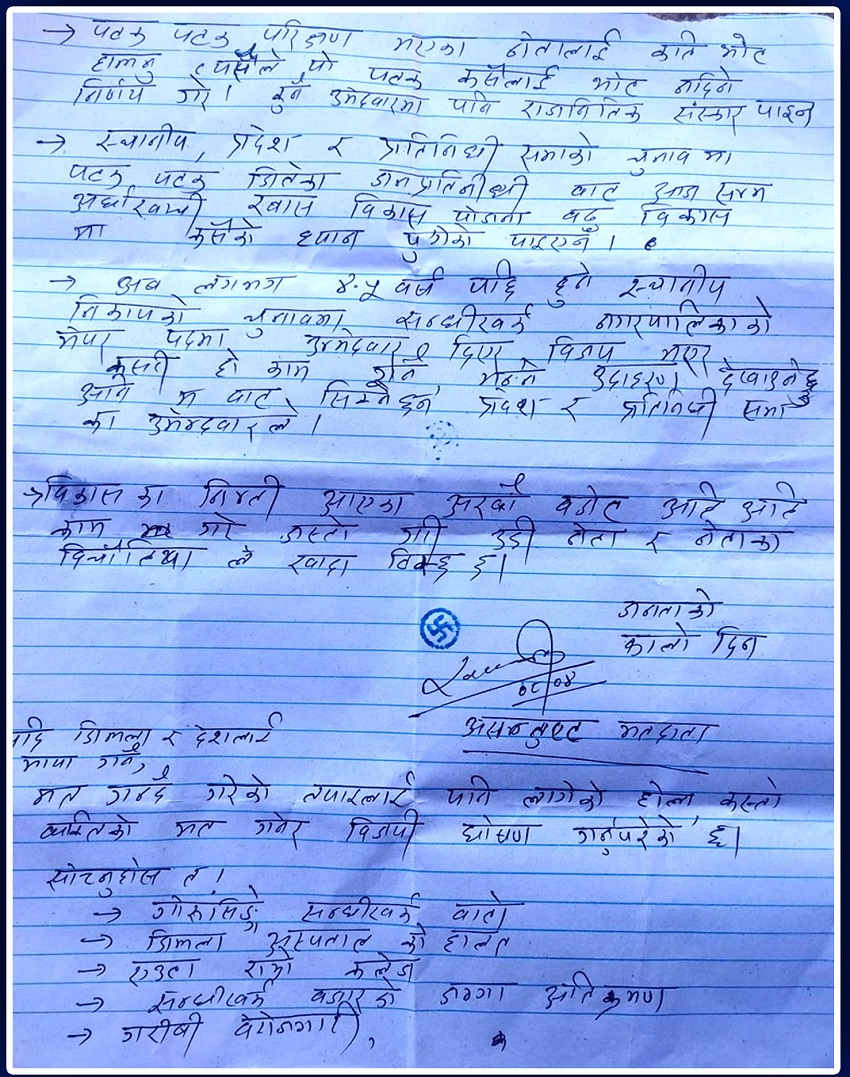 → पटक पटक परिक्षण भएका नेतालाई कति भोट
हाल्नु त्यसैले यो पटक कसैलाई भोट नदिने
निर्णय गरे। कुनै उमेदवारमा पनि राजनितिक संस्कार पाइन
→ स्थानीय, प्रदेश र प्रतिनिधी सभाको चुनाव मा
पटक पटक जितेका जनप्रतिनीधी बाट आज सम्म
अर्घाखाची खास विकास योजना बृद्द विकास
मा कसैको ध्यान पुगेको पाइएनँ।
→ अब लगभग ४.५ वर्ष पछि हुने स्थानीय
निकायको चुनावमा सन्धीखर्क नगरपालिकाको
मेयर पदमा उमेदवारी दिएर विजय भएर
कसरी हो काम गर्ने भन्ने उदाहरण देखाउनेछु
अनि म बाट सिक्नेछन् प्रदेश र प्रतिनिधी सभा
का उमेन्दवारले।
→ विकास का निम्ती आएका अरबौं बजेट अलि अलि
काम गरे जस्तो गरी उही नेता र नेताका
विचौलिया ले खादा बिक्छ छ।
जनताको
कालो दिन
०८/०४
असन्तुष्ट मतदाता
यदि जिल्ला र देशलाई
माया गर्ने,
मत गन्दै गरेको तपाईलाई पनि लागेको होला, कस्तो
व्यक्तिको मत गनेर विजयी घोषणा गर्नुपरेको छ।
सोच्नुहोस त!
→ गोरुसिङ्गे सन्धीखर्क बाटो
→ जिल्ला अस्पताल को हालत
→ एउटा राम्रो कलेज
→ सन्धीखर्क बजारको जग्गा अतिक्रमण
→ गरीबी बेरोजगारी,